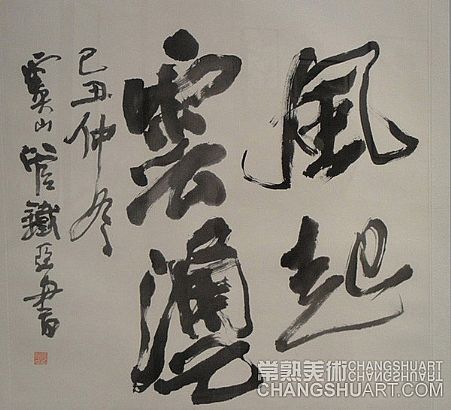 風起
雲湧
己丑仲冬
虞山管鐵亞書
常熟美術 CHANGSHUART
CHANGSHUART
CHANGSHUART.COM